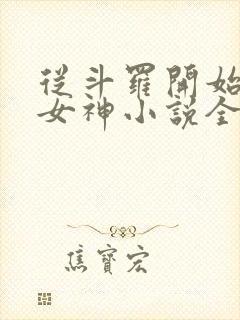 從斗羅開始
女神小說全
焦寶宏